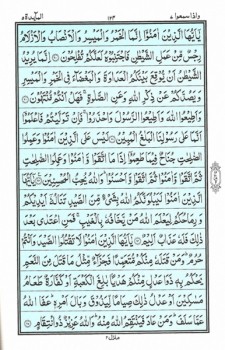 واذا سمعوا ٧ ١٢٣ المآئدة ٥
يٰۤاَيُّهَا الَّذِيْنَ اٰمَنُوْۤا اِنَّمَا الْخَمْرُ وَالْمَيْسِرُ وَالْاَنْصَابُ وَالْاَزْلَامُ
رِجْسٌ مِّنْ عَمَلِ الشَّيْطٰنِ فَاجْتَنِبُوْهُ لَعَلَّكُمْ تُفْلِحُوْنَ اِنَّمَا يُرِيْدُ
الشَّيْطٰنُ اَنْ يُّوْقِعَ بَيْنَكُمُ الْعَدَاوَةَ وَالْبَغْضَآءَ فِى الْخَمْرِ وَالْمَيْسِرِ
وَيَصُدَّكُمْ عَنْ ذِكْرِ اللّٰهِ وَعَنِ الصَّلٰوةِ فَهَلْ اَنْتُمْ مُّنْتَهُوْنَ
وَاَطِيْعُوا اللّٰهَ وَاَطِيْعُوا الرَّسُوْلَ وَاحْذَرُوْا فَاِنْ تَوَلَّيْتُمْ فَاعْلَمُوْۤا
اَنَّمَا عَلٰى رَسُوْلِنَا الْبَلٰغُ الْمُبِيْنُ لَيْسَ عَلَى الَّذِيْنَ اٰمَنُوْا وَعَمِلُوا
الصّٰلِحٰتِ جُنَاحٌ فِيْمَا طَعِمُوْۤا اِذَا مَا اتَّقَوْا وَّاٰمَنُوْا وَعَمِلُوا الصّٰلِحٰتِ
ثُمَّ اتَّقَوْا وَّاٰمَنُوْا ثُمَّ اتَّقَوْا وَّاَحْسَنُوْا وَاللّٰهُ يُحِبُّ الْمُحْسِنِيْنَ يٰۤاَيُّهَا
الَّذِيْنَ اٰمَنُوْا لَيَبْلُوَنَّكُمُ اللّٰهُ بِشَىْءٍ مِّنَ الصَّيْدِ تَنَالُهٗۤ اَيْدِيْكُمْ
وَرِمَاحُكُمْ لِيَعْلَمَ اللّٰهُ مَنْ يَّخَافُهٗ بِالْغَيْبِ فَمَنِ اعْتَدٰى بَعْدَ
ذٰلِكَ فَلَهٗ عَذَابٌ اَلِيْمٌ يٰۤاَيُّهَا الَّذِيْنَ اٰمَنُوْا لَا تَقْتُلُوا الصَّيْدَ وَاَنْتُمْ
حُرُمٌ وَمَنْ قَتَلَهٗ مِنْكُمْ مُّتَعَمِّدًا فَجَزَآءٌ مِّثْلُ مَا قَتَلَ مِنَ النَّعَمِ
يَحْكُمُ بِهٖ ذَوَا عَدْلٍ مِّنْكُمْ هَدْيًۢا بٰلِغَ الْكَعْبَةِ اَوْ كَفَّارَةٌ طَعَامُ
مَسٰكِيْنَ اَوْ عَدْلُ ذٰلِكَ صِيَامًا لِّيَذُوْقَ وَبَالَ اَمْرِهٖ عَفَا اللّٰهُ
عَمَّا سَلَفَ وَمَنْ عَادَ فَيَنْتَقِمُ اللّٰهُ مِنْهُ وَاللّٰهُ عَزِيْزٌ ذُو انْتِقَامٍ
منزل ٢